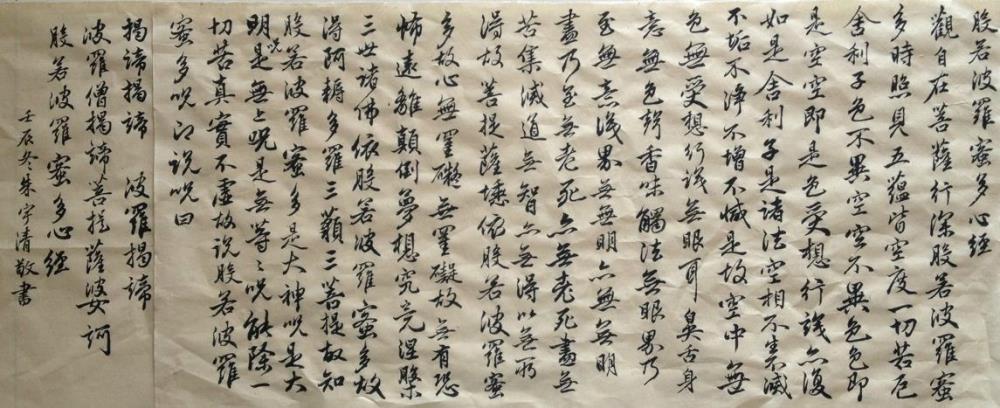 般若波羅蜜多心經
觀自在菩薩行深般若波羅蜜
多時照見五蘊皆空度一切苦厄
舍利子色不異空空不異色色即
是空空即是色受想行識亦復
如是舍利子是諸法空相不生不滅
不垢不淨不增不減是故空中無
色無受想行識無眼耳鼻舌身
意無色聲香味觸法無眼界乃
至無意識界無無明亦無無明
盡乃至無老死亦無老死盡無
苦集滅道無智亦無得以無所
得故菩提薩埵依般若波羅蜜
多故心無罣礙無罣礙故無有恐
怖遠離顛倒夢想究竟涅槃
三世諸佛依般若波羅蜜多故
得阿耨多羅三藐三菩提故知
般若波羅蜜多是大神咒是大
明咒是無上咒是無等々咒能除一
切苦真實不虛故說般若波羅
蜜多咒即說咒曰
揭諦揭諦 波羅揭諦
波羅僧揭諦菩提薩婆訶
般若波羅蜜多心經
壬辰冬朱宇清敬書